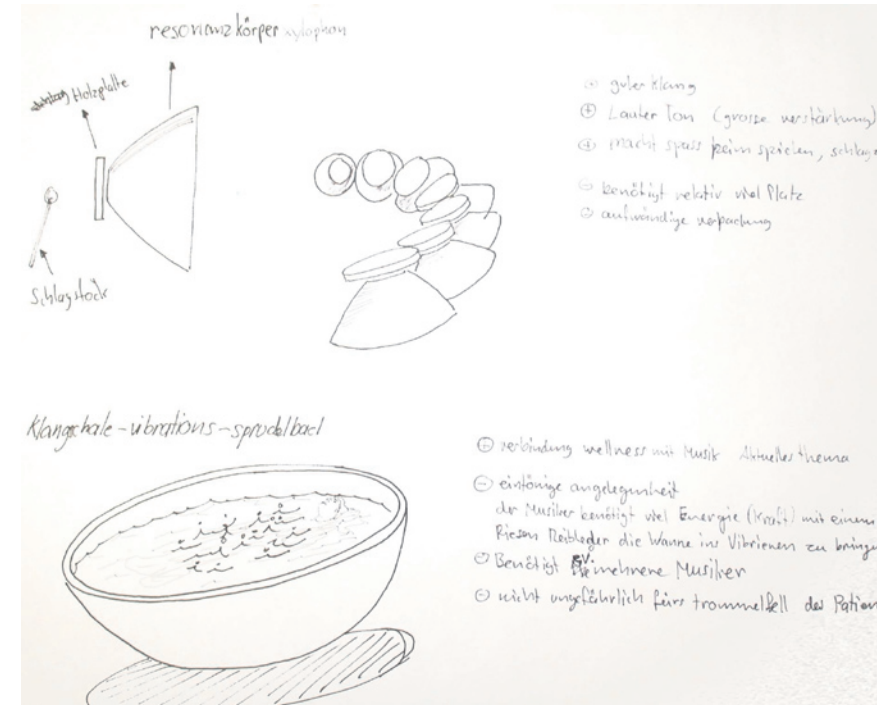 resonanzkörper xylophon
Holzplatte
Schlagstock
guter Klang
⊕ Lauter Ton (grosse verstärkung)
⊕ macht spass beim spielen, schlage
⊖ benötigt relativ viel Platz
⊖ aufwändige verpackung
Klangschale-vibrations-sprudelbad
⊕ verbindung wellness mit Musik Aktuelles thema
⊖ eintönige angelegenheit
der Musiker benötigt viel Energie (Kraft) mit einem
Riesen Reibleder die Wanne ins Vibrieren zu bringe
Benötigt mehrere Musiker
⊖ nicht ungefährlich fürs trommelfell des Patien